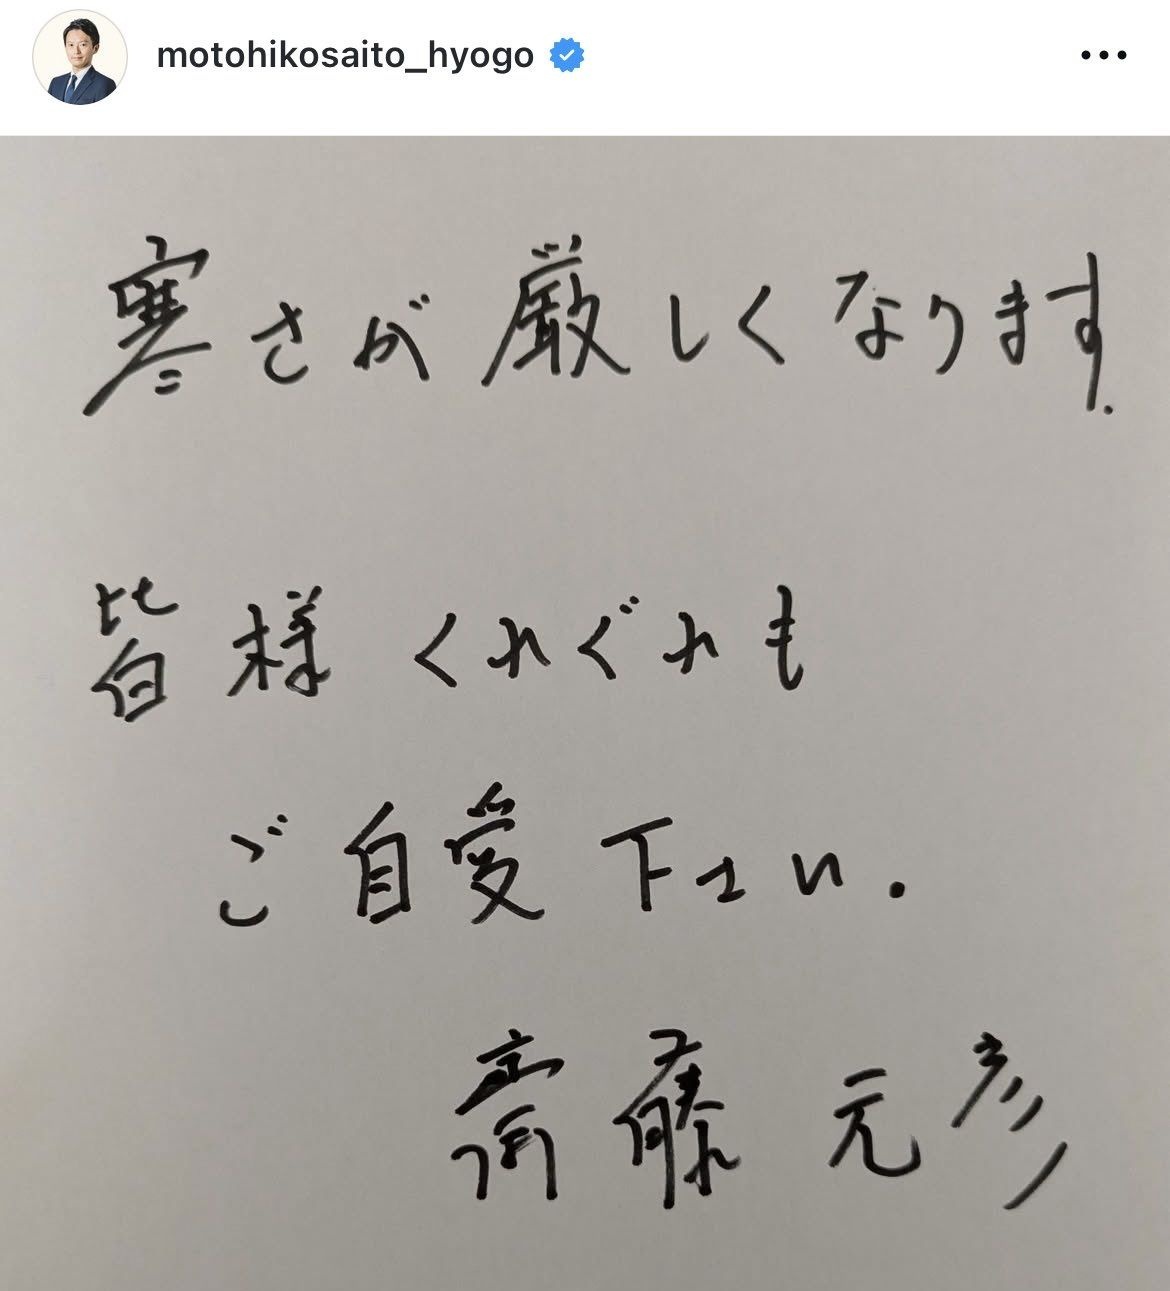 motohikosaito_hyogo
寒さが厳しくなります.
皆様くれぐれも
ご自愛下さい.
齋藤元彦